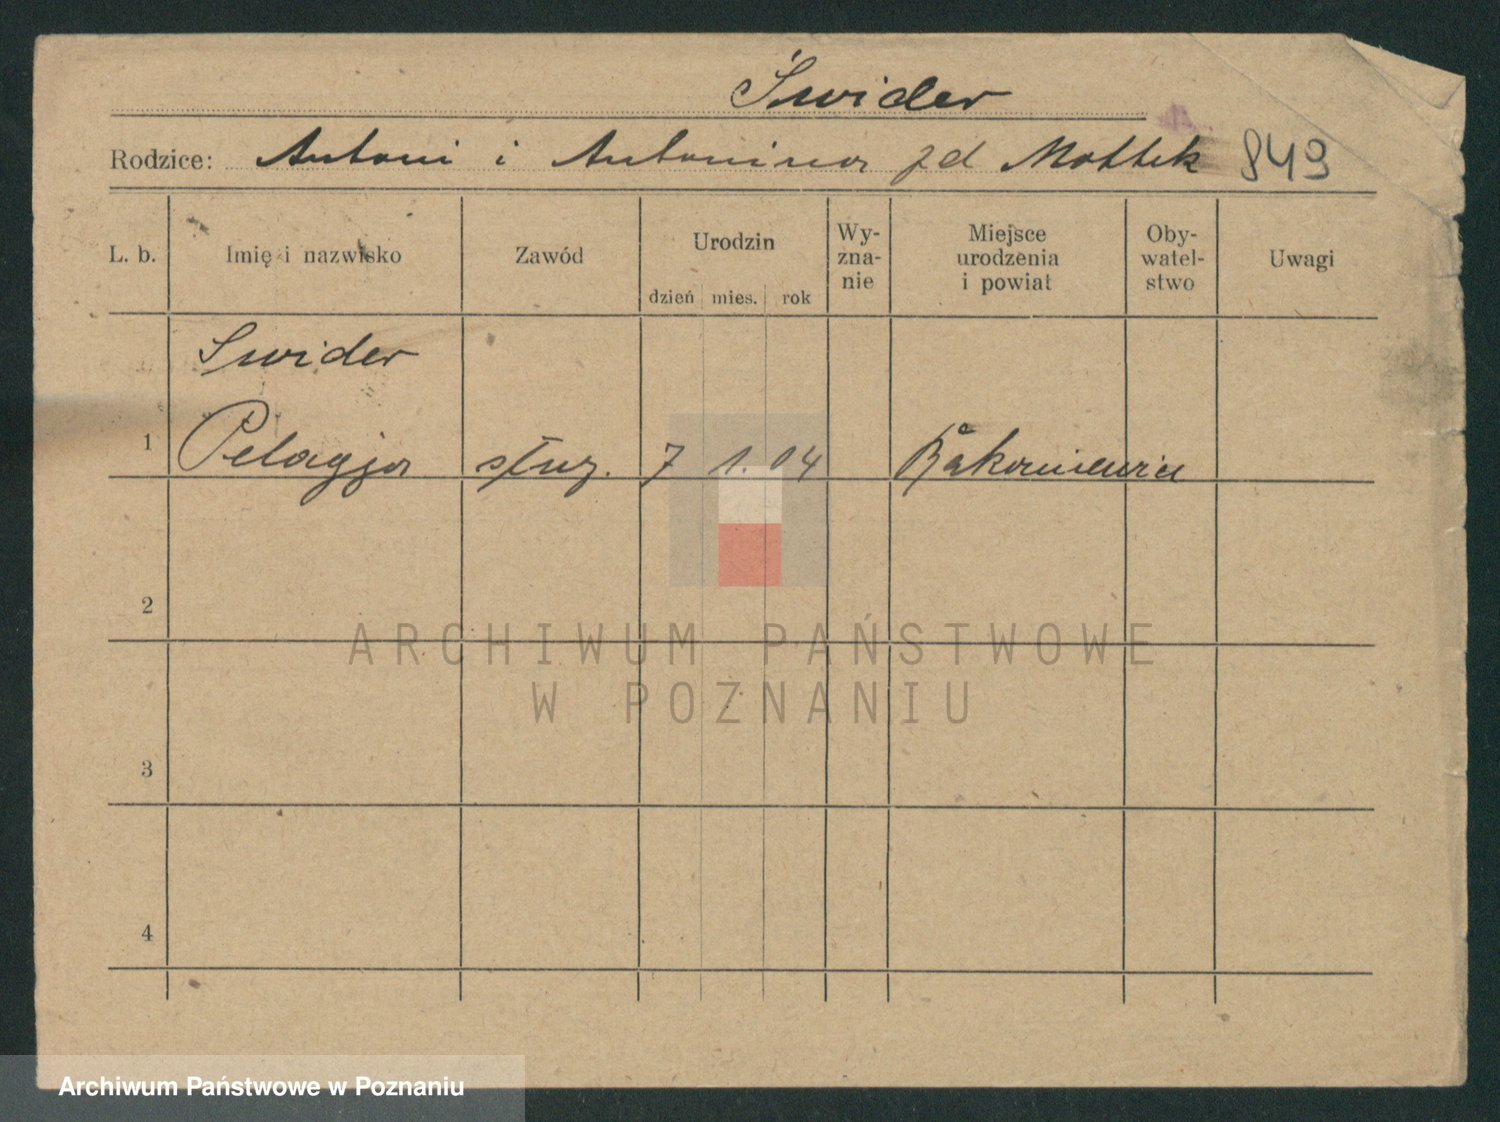 Świder
Rodzice: Antoni i Antonina zd Mottek 849
L. b. Imię i nazwisko Zawód Urodzin dzień mies. rok Wy-zna-nie Miejsce urodzenia i powiat Oby-watel-stwo Uwagi
Swider
1 Pelagja służ. 7 1. 04
2
3
4
ARCHIWUM PAŃSTWOWE
W POZNANIU
Archiwum Państwowe w Poznaniu